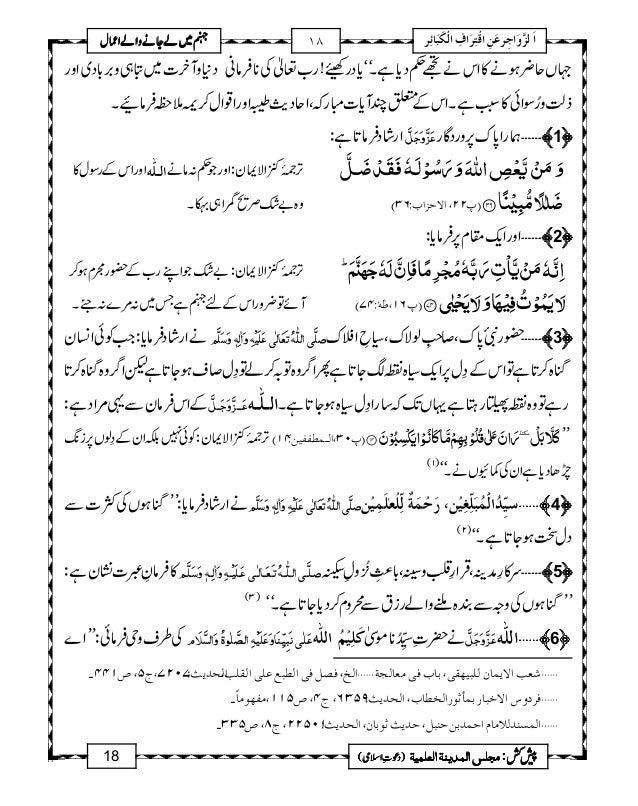 اَلزَّوَاجِرعَنِ اقْتِرَافِ الْكَبَائِر
۱۸
جہنم میں لے جانے والے اعمال
جہاں حاضر ہونے کا اس نے تجھے حکم دیا ہے۔‘‘یادرکھیئے!رب تعالیٰ کی نافرمانی دنیا وآخرت میں تباہی و بربادی اور
ذلت ورُسوائی کا سبب ہے۔اس کے متعلق چند آیات مبارکہ،احادیث طیبہ اور اقوال کریمہ ملاحظہ فرمائیے۔
﴿1﴾……ہمارا پاک پروردگار عَزَّوَجَلَّ ارشادفرماتا ہے:
وَ مَنْ يَّعْصِ اللّٰهَ وَ رَسُوْلَهٗ فَقَدْ ضَلَّ
ترجمۂ کنزالایمان:اور جو حکم نہ مانے اللّٰہ اور اس کے رسول کا
ضَلٰلًا مُّبِیْنًاؕ(۳۶) (پ۲۲، الاحزاب:۳۶)
وہ بے شک صریح گمراہی بہکا۔
﴿2﴾……اور ایک مقام پرفرمایا:
اِنَّهٗ مَنْ یَّاْتِ رَبَّهٗ مُجْرِمًا فَاِنَّ لَهٗ جَهَنَّمَؕ
ترجمۂ کنزالایمان: بے شک جو اپنے رب کے حضور مجرم ہوکر
لَا یَمُوْتُ فِیْهَا وَ لَا یَحْیٰى(۷۴) (پ۱۶، طٰہٰ:۷۴)
آئے تو ضرور اس کے لئے جہنم ہے جس میں نہ مرے نہ جئے۔
﴿3﴾……حضور نبیٔ پاک، صاحبِ لولاک، سیاحِ افلاک صلَّی اللّٰہُ تَعَالٰی عَلَیْہِ وَاٰلِہٖ وَسَلَّم نے ارشادفرمایا:جب کوئی انسان
گناہ کرتا ہے تواس کے دل پرایک سیاہ نقطہ لگ جاتا ہے پھر اگر وہ توبہ کرلے تو دِل صاف ہوجاتا ہے لیکن اگر وہ گناہ کرتا
رہے تو وہ نقطہ پھیلتا رہتا ہے یہاں تک کہ سارا دِل سیاہ ہوجاتا ہے۔ اللّٰہ عَزَّوَجَلَّ کے اس فرمان سے یہی مراد ہے:
’’كَلَّا بَلْٚ- رَانَ عَلٰى قُلُوْبِهِمْ مَّا كَانُوْا یَكْسِبُوْنَ(۱۴) (پ۳۰،المطففین:۱۴) ترجمۂ کنزالایمان:کوئی نہیں بلکہ ان کے دلوں پر زنگ
چڑھا دیا ہے ان کی کمائیوں نے۔‘‘ (۱)
﴿4﴾……سیِّدُ الْمُبَلِّغِیْن، رَحْمَۃٌ لِّلْعٰلَمِیْن صلَّی اللّٰہُ تَعَالٰی عَلَیْہِ وَاٰلِہٖ وَسَلَّم نے ارشادفرمایا:’’گناہوں کی کثرت سے
دل سخت ہوجاتا ہے۔‘‘ (۲)
﴿5﴾……سرکارِ مدینہ، قرارِ قلب وسینہ، باعثِ نُزولِ سکینہ صلَّی اللّٰہُ تَعَالٰی عَلَیْہِ وَاٰلِہٖ وَسَلَّم کا فرمانِ عبرت نشان ہے:
’’گناہوں کی وجہ سے بندہ ملنے والے رزق سے محروم کردیا جاتا ہے۔‘‘ (۳)
﴿6﴾……اللّٰہ عَزَّوَجَلَّ نے حضرت سیِّدُنا موسیٰ کَلِیْمُ اللّٰہ عَلٰی نَبِیِّنَاوَعَلَیْہِ الصَّلٰوۃُ وَالسَّلَام کی طرف وحی فرمائی:’’اے
……شعب الایمان للبیہقی، باب فی معالجۃ……الخ، فصل فی الطبع علی القلب،الحدیث۷۲۰۷،ج۵، ص۴۴۱۔
……فردوس الاخبار بمأثور الخطاب، الحدیث۶۳۵۹، ج۴، ص۱۱۵،مفهوماً۔
……المسند للامام احمد بن حنبل، حدیث ثوبان، الحدیث۲۲۵۰۱، ج۸، ص۳۳۵۔
پیش کش: مجلس المدینۃ العلمیۃ (دعوتِ اسلامی)
18